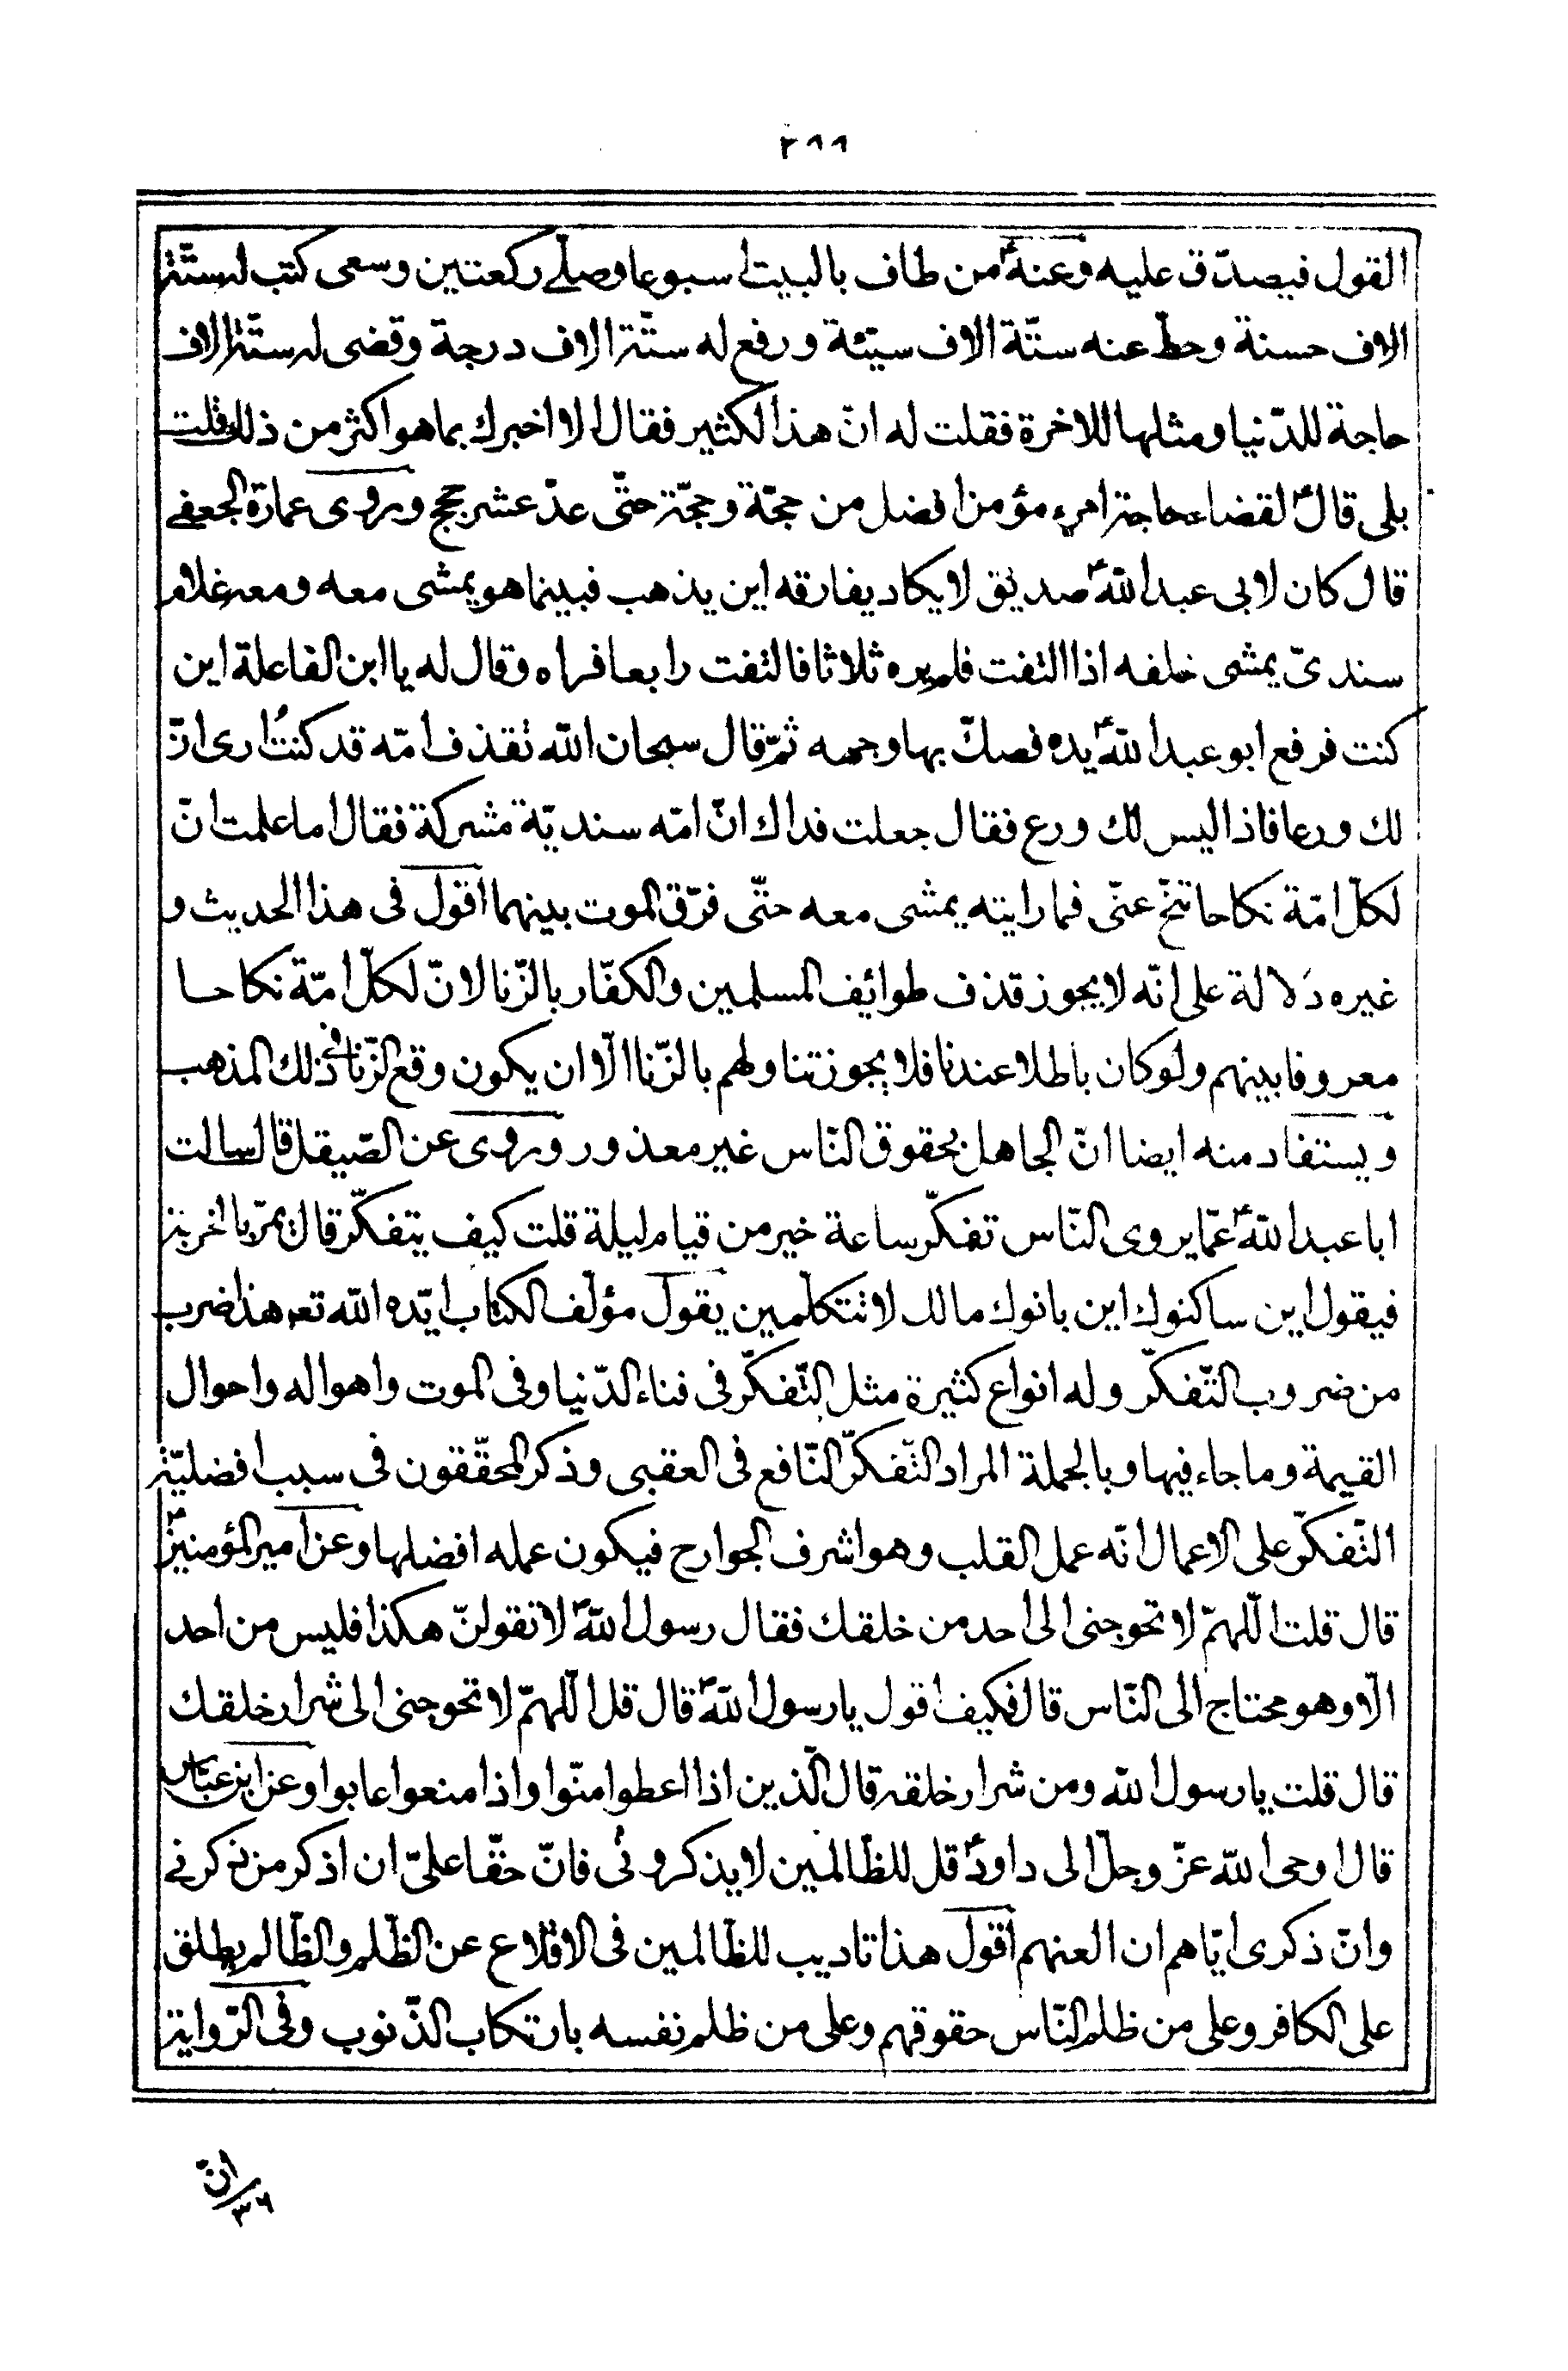 ٢٨٨
القول فيصدّق عليه وعنه ع من طاف بالبيت اسبوعا وصلّى ركعتين وسعى كتب له ستّة
الاف حسنة وحطّ عنه ستّة الاف سيّئة ورفع له ستّة الاف درجة وقضى له ستّة الاف
حاجة للدّنيا ومثلها للاخرة فقلت له انّ هذا الكثير فقال الا اخبرك بما هو اكثر من ذلك قلت
بلى قال ع لقضاء حاجة امرء مؤمن افضل من حجّة وحجّة حتّى عدّ عشر حجج وروى عمارة الجعفي
قال كان لابى عبد الله ع صديق لا يكاد يفارقه اين يذهب فبينما هو يمشى معه ومعه غلام
سندىّ يمشى خلفه اذا التفت فلم يره ثلاثا فالتفت رابعا فراه وقال له يا ابن الفاعلة اين
كنت فرفع ابو عبد الله ع يده فصكّ بها وجهه ثمّ قال سبحان الله تقذف امّه قد كنتُ ارى انّ
لك ورعا فاذا ليس لك ورع فقال جعلت فداك انّ امّه سنديّة مشركة فقال اما علمت انّ
لكلّ امّة نكاحا تنحّ عنّى فما رايته يمشى معه حتّى فرّق الموت بينهما اقول فى هذا الحديث و
غيره دَلالة على انّه لا يجوز قذف طوائف المسلمين والكفّار بالزّنا لانّ لكلّ امّة نكاحا
معروفا بينهم ولو كان باطلا عندنا فلا يجوز تناولهم بالزّنا الّا ان يكون وقع الزّنا فى ذلك المذهب
ويستفاد منه ايضا انّ الجاهل بحقوق النّاس غير معذور وروى عن الصّيقل قال سالت
ابا عبد الله ع عمّا يروى النّاس تفكّر ساعة خير من قيام ليلة قلت كيف يتفكّر قال يمرّ بالخربة
فيقول اين ساكنوك اين بانوك مالك لا تتكلّمين يقول مؤلّف الكتاب ايّده الله تعه هذا ضرب
من ضروب التّفكّر وله انواع كثيرة مثل التّفكّر فى فناء الدّنيا وفى الموت واهواله واحوال
القيمة وما جاء فيها وبالجملة المراد التّفكّر النّافع فى العقبى وذكر المحقّقون فى سبب افضليّة
التّفكّر على الاعمال انّه عمل القلب وهو اشرف الجوارح فيكون عمله افضلها وعن امير المؤمنين ع
قال قلت اللّهمّ لا تحوجنى الى احد من خلقك فقال رسول الله ص لا تقولنّ هكذا فليس من احد
الّا وهو محتاج الى النّاس قال فكيف اقول يا رسول الله ص قال قل اللّهمّ لا تحوجنى الى شرار خلقك
قال قلت يا رسول الله ومن شرار خلقه قال الّذين اذا اعطوا منّوا واذا منعوا عابوا وعن ابن عبّاس
قال اوحى الله عزّ وجلّ الى داود ع قل للظّالمين لا يذكرونى فانّ حقّا علىّ ان اذكر من ذكرنى
وانّ ذكرى ايّاهم ان العنهم اقول هذا تاديب للظّالمين فى الاقلاع عن الظّلم والظّالم يطلق
على الكافر وعلى من ظلم النّاس حقوقهم وعلى من ظلم نفسه بارتكاب الذّنوب وفى الرّواية
انّ
٣٦